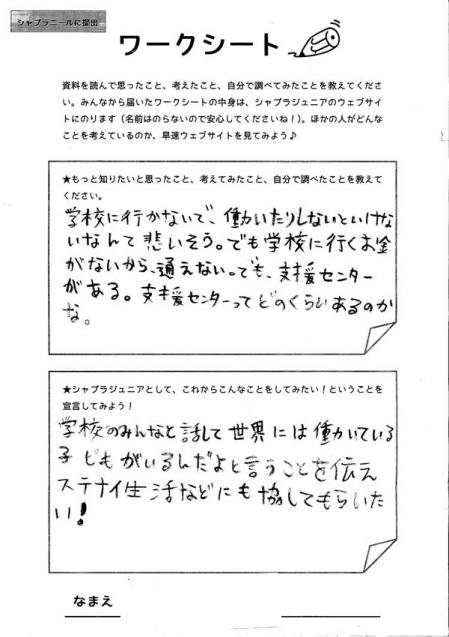 シャプラニールに提出
ワークシート
資料を読んで思ったこと、考えたこと、自分で調べてみたことを教えてくださ
い。みんなから届いたワークシートの中身は、シャプラジュニアのウェブサイ
トにのります（名前はのらないので安心してくださいね！）。ほかの人がどんな
ことを考えているのか、早速ウェブサイトを見てみよう♪
★もっと知りたいと思ったこと、考えてみたこと、自分で調べたことを教えて
ください。
学校に行かないで、働いたりしないといけな
いなんて悲いそう。でも学校に行くお金
がないから、通えない。でも、支援センター
がある。支援センターってどのくらいあるのか
な。
★シャプラジュニアとして、これからこんなことをしてみたい！ということを
宣言してみよう！
学校のみんなと話して世界には働いている
子どもがいるんだよと言うことを伝え
ステナイ生活などにも協してもらいた
い！
なまえ